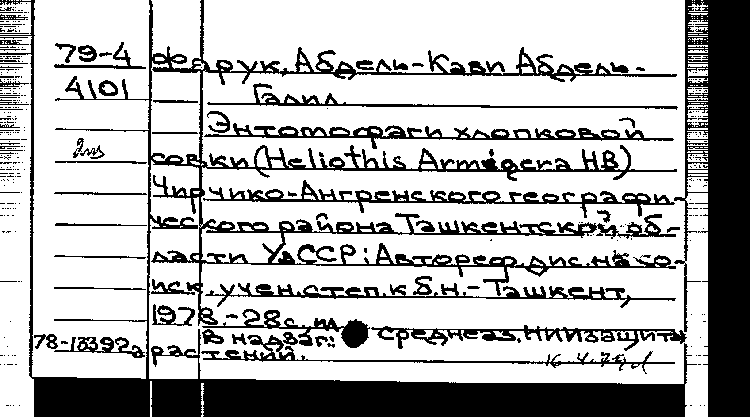 79-4 Фарук, Абдель-Кави Абдель-
4101 Галил.
Энтомофаги хлопковой
совки (Heliothis Armigera HB)
Чирчико-Ангренского географи-
ческого района Ташкентской об-
ласти УзССР: Автореф. дис. на со-
иск. учен. степ. к.б.н. - Ташкент,
1978. - 28 с., ил
В надзаг: Среднеаз. НИИ защиты
78-13392а растений.
16.4.79